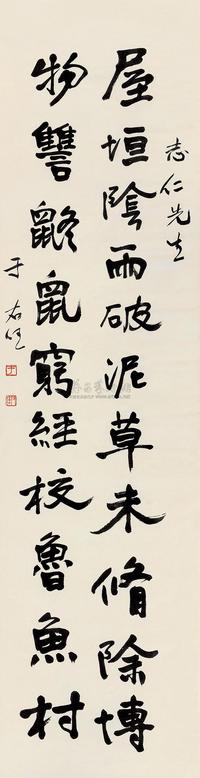 志仁先生
屋垣陰雨破泥草未脩除博
物讐鼨鼠窮經校魯魚村
于右任